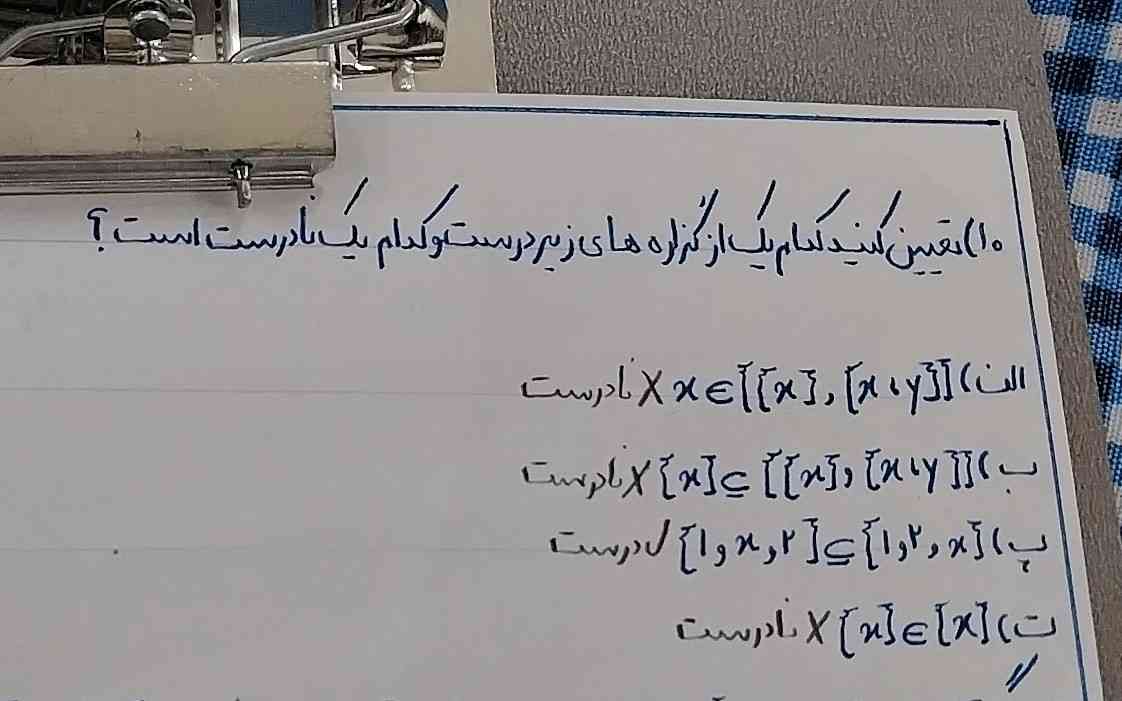 ۱۰) تعیین کنید کدام یک از گزاره های زیر درست و کدام یک نادرست است؟
الف) x ∈ {{x}, {x، y}} X نادرست
ب) {x} ⊆ {{x}, {x، y}} X نادرست
پ) {۱, x, ۲} ⊆ {۱, ۲, x} ✓ درست
ت) {x} ∈ {x} X نادرست